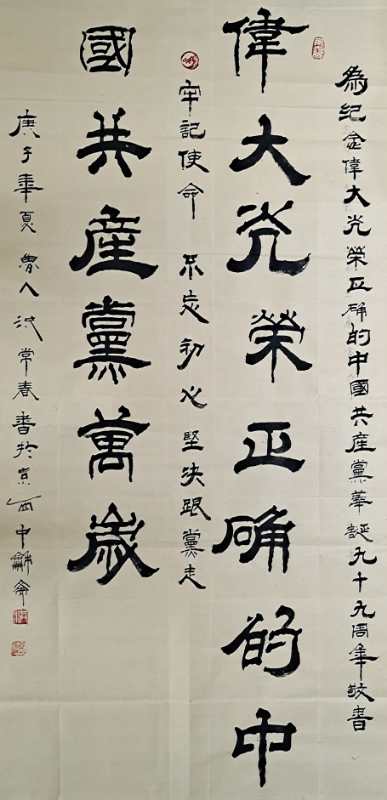 為纪念偉大光榮正确的中國共産黨華誕九十九周年敬書
偉大光榮正确的中
牢記使命 不忘初心 堅决跟黨走
國共産黨萬歲
庚子年夏 常春書於京西中